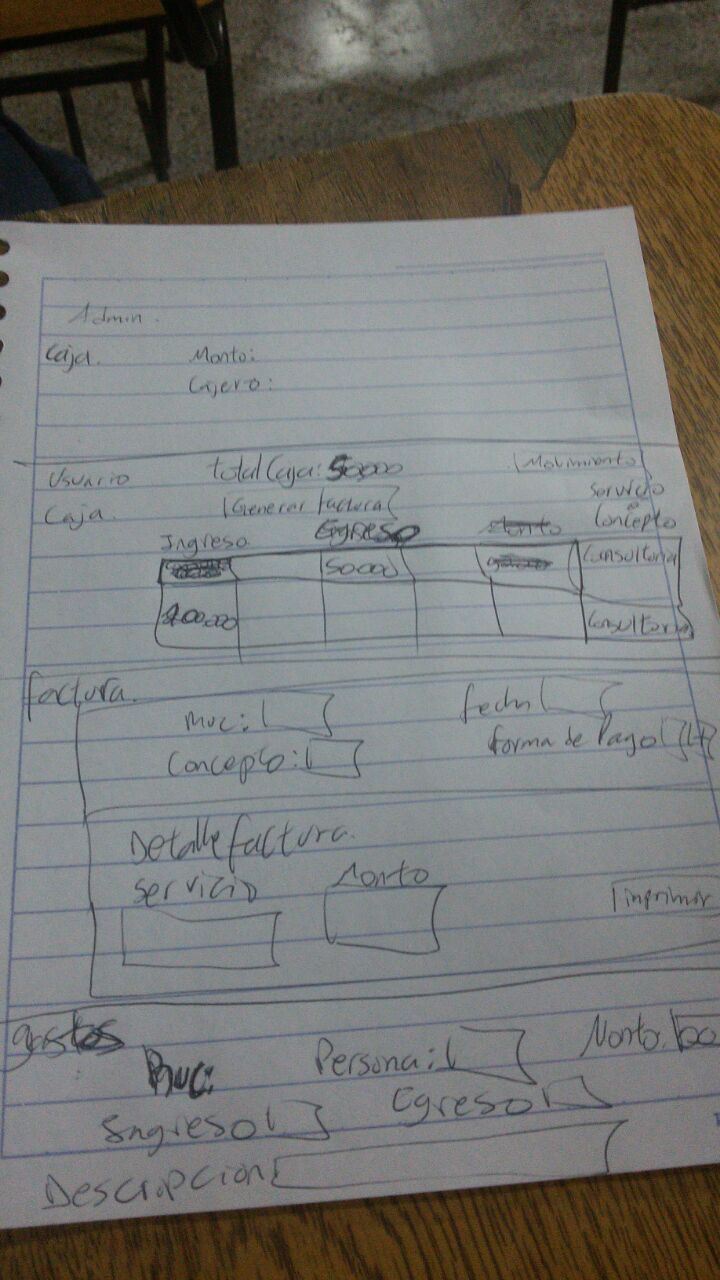 Admin.
Caja. Monto:
Cajero:
Usuario total Caja: 50000 Movimiento
Caja. Generar factura Servicio o Concepto
Ingreso Egreso Monto
50000 Consultoria
200.000 Consultoria
factura.
Ruc: fecha
Concepto: forma de Pago
Detalle factura.
Servicio Monto
imprimir
gastos
Ruc: Persona: Monto: 00
Ingreso Egreso
Descripcion